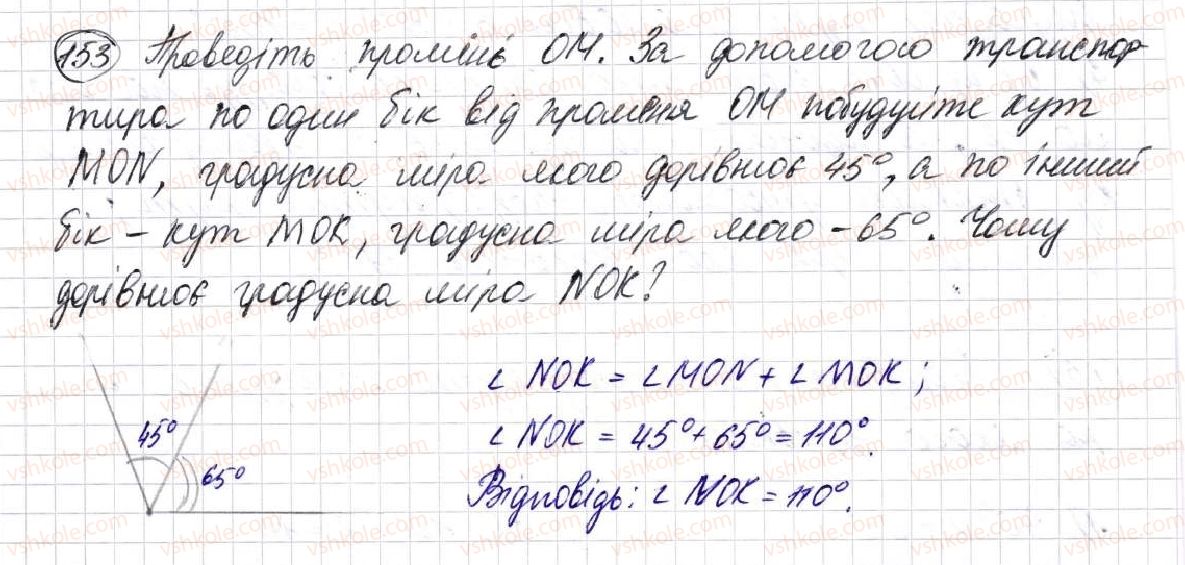 153 Проведіть промінь ОМ. За допомогою транспор
тира по один бік від променя ОМ побудуйте кут
MON, градусна міра якого дорівнює 45°, а по інший
бік – кут МОК, градусна міра якого – 65°. Чому
дорівнює градусна міра NOK?
∠ NOK = ∠ MON + ∠ MOK ;
45°
∠ NOK = 45° + 65° = 110°.
65°
Відповідь: ∠ NOK = 110°.
vshkole.com